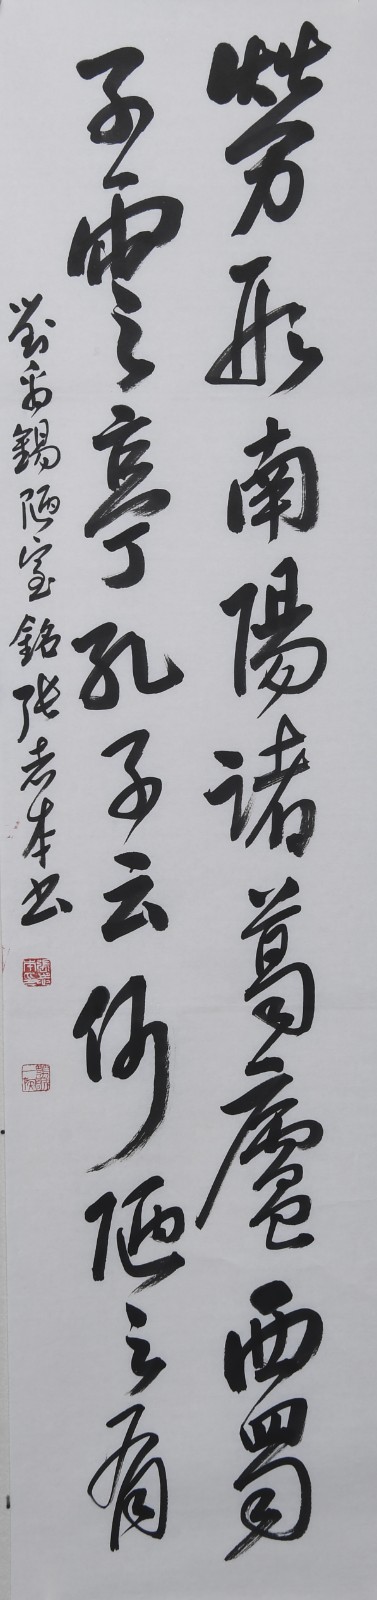 勞形南陽諸葛廬西蜀
子雲亭孔子云何陋之有
劉禹錫陋室銘張志本书